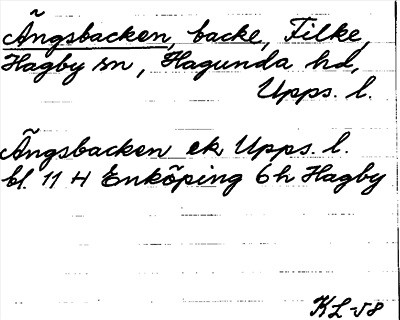 Ängsbacken, backe, Filke,
Hagby sn, Hagunda hd,
Upps. l.
Ängsbacken ek Upps. l.
bl. 11 H Enköping 6h Hagby
KL-58